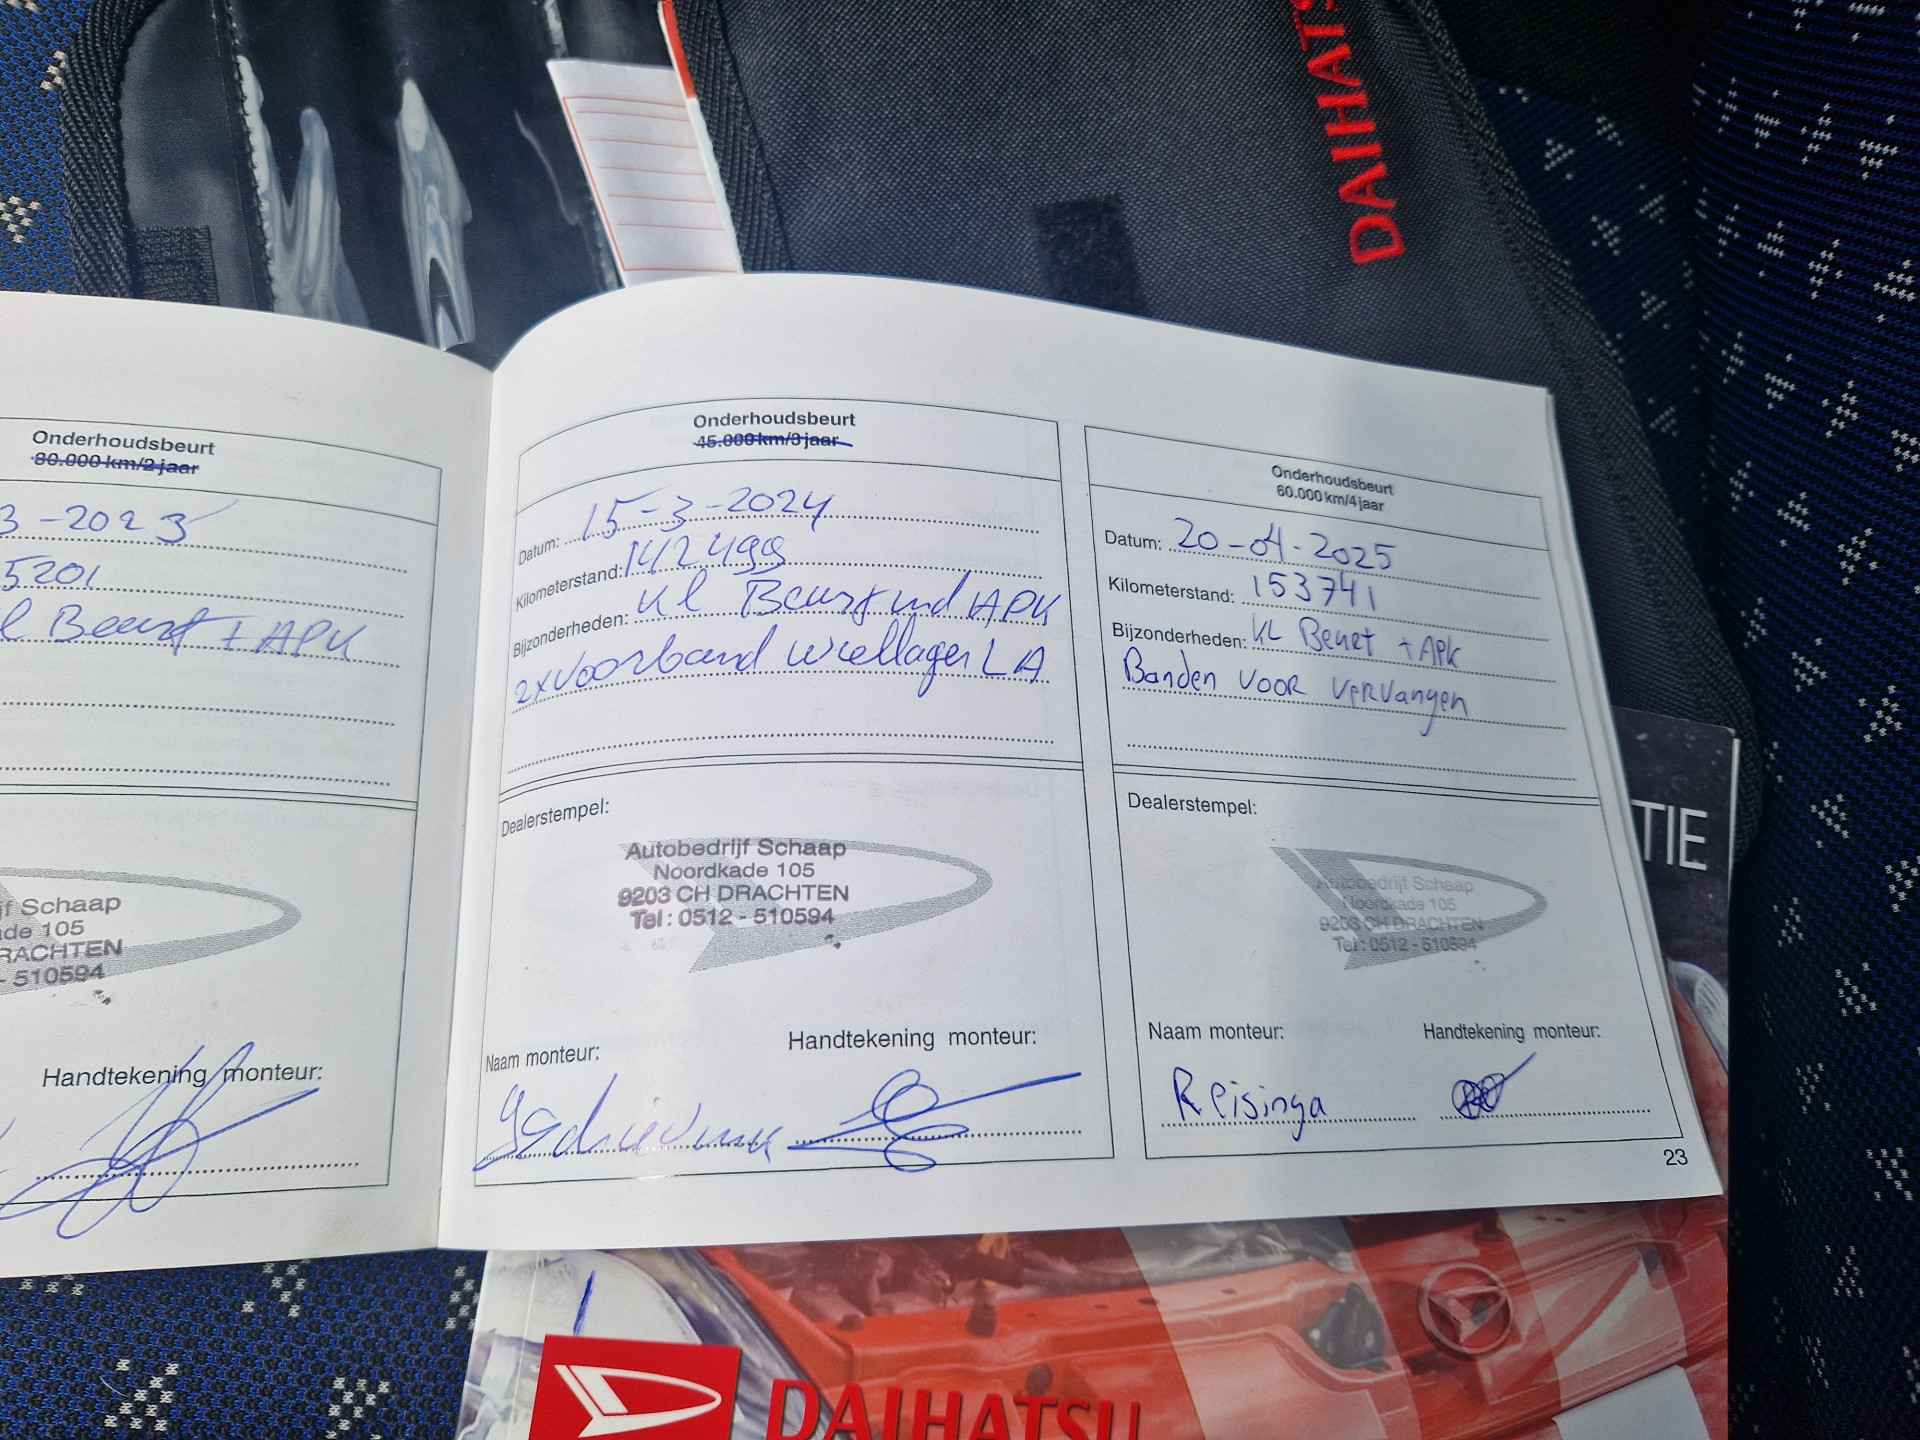 DAIHATSU
Onderhoudsbeurt
30.000 km/2 jaar
3-2023
5201
Beurt + APK
jf Schaap
ade 105
RACHTEN
- 510594
Handtekening monteur:
Onderhoudsbeurt
45.000 km/3 jaar
Datum: 15-3-2024
Kilometerstand: 142499
Bijzonderheden: Kl Beurt und APK
2x Voorband Wiellager LA
Dealerstempel:
Autobedrijf Schaap
Noordkade 105
9203 CH DRACHTEN
Tel : 0512 - 510594
Naam monteur:
Handtekening monteur:
Onderhoudsbeurt
60.000 km/4 jaar
Datum: 20-04-2025
Kilometerstand: 153741
Bijzonderheden: KL Beurt + APK
Banden VOOR Vervangen
Dealerstempel:
Autobedrijf Schaap
Noordkade 105
9203 CH DRACHTEN
Tel : 0512 - 510594
Naam monteur:
Handtekening monteur:
Reisinga
23
TIE
DAIHATSU